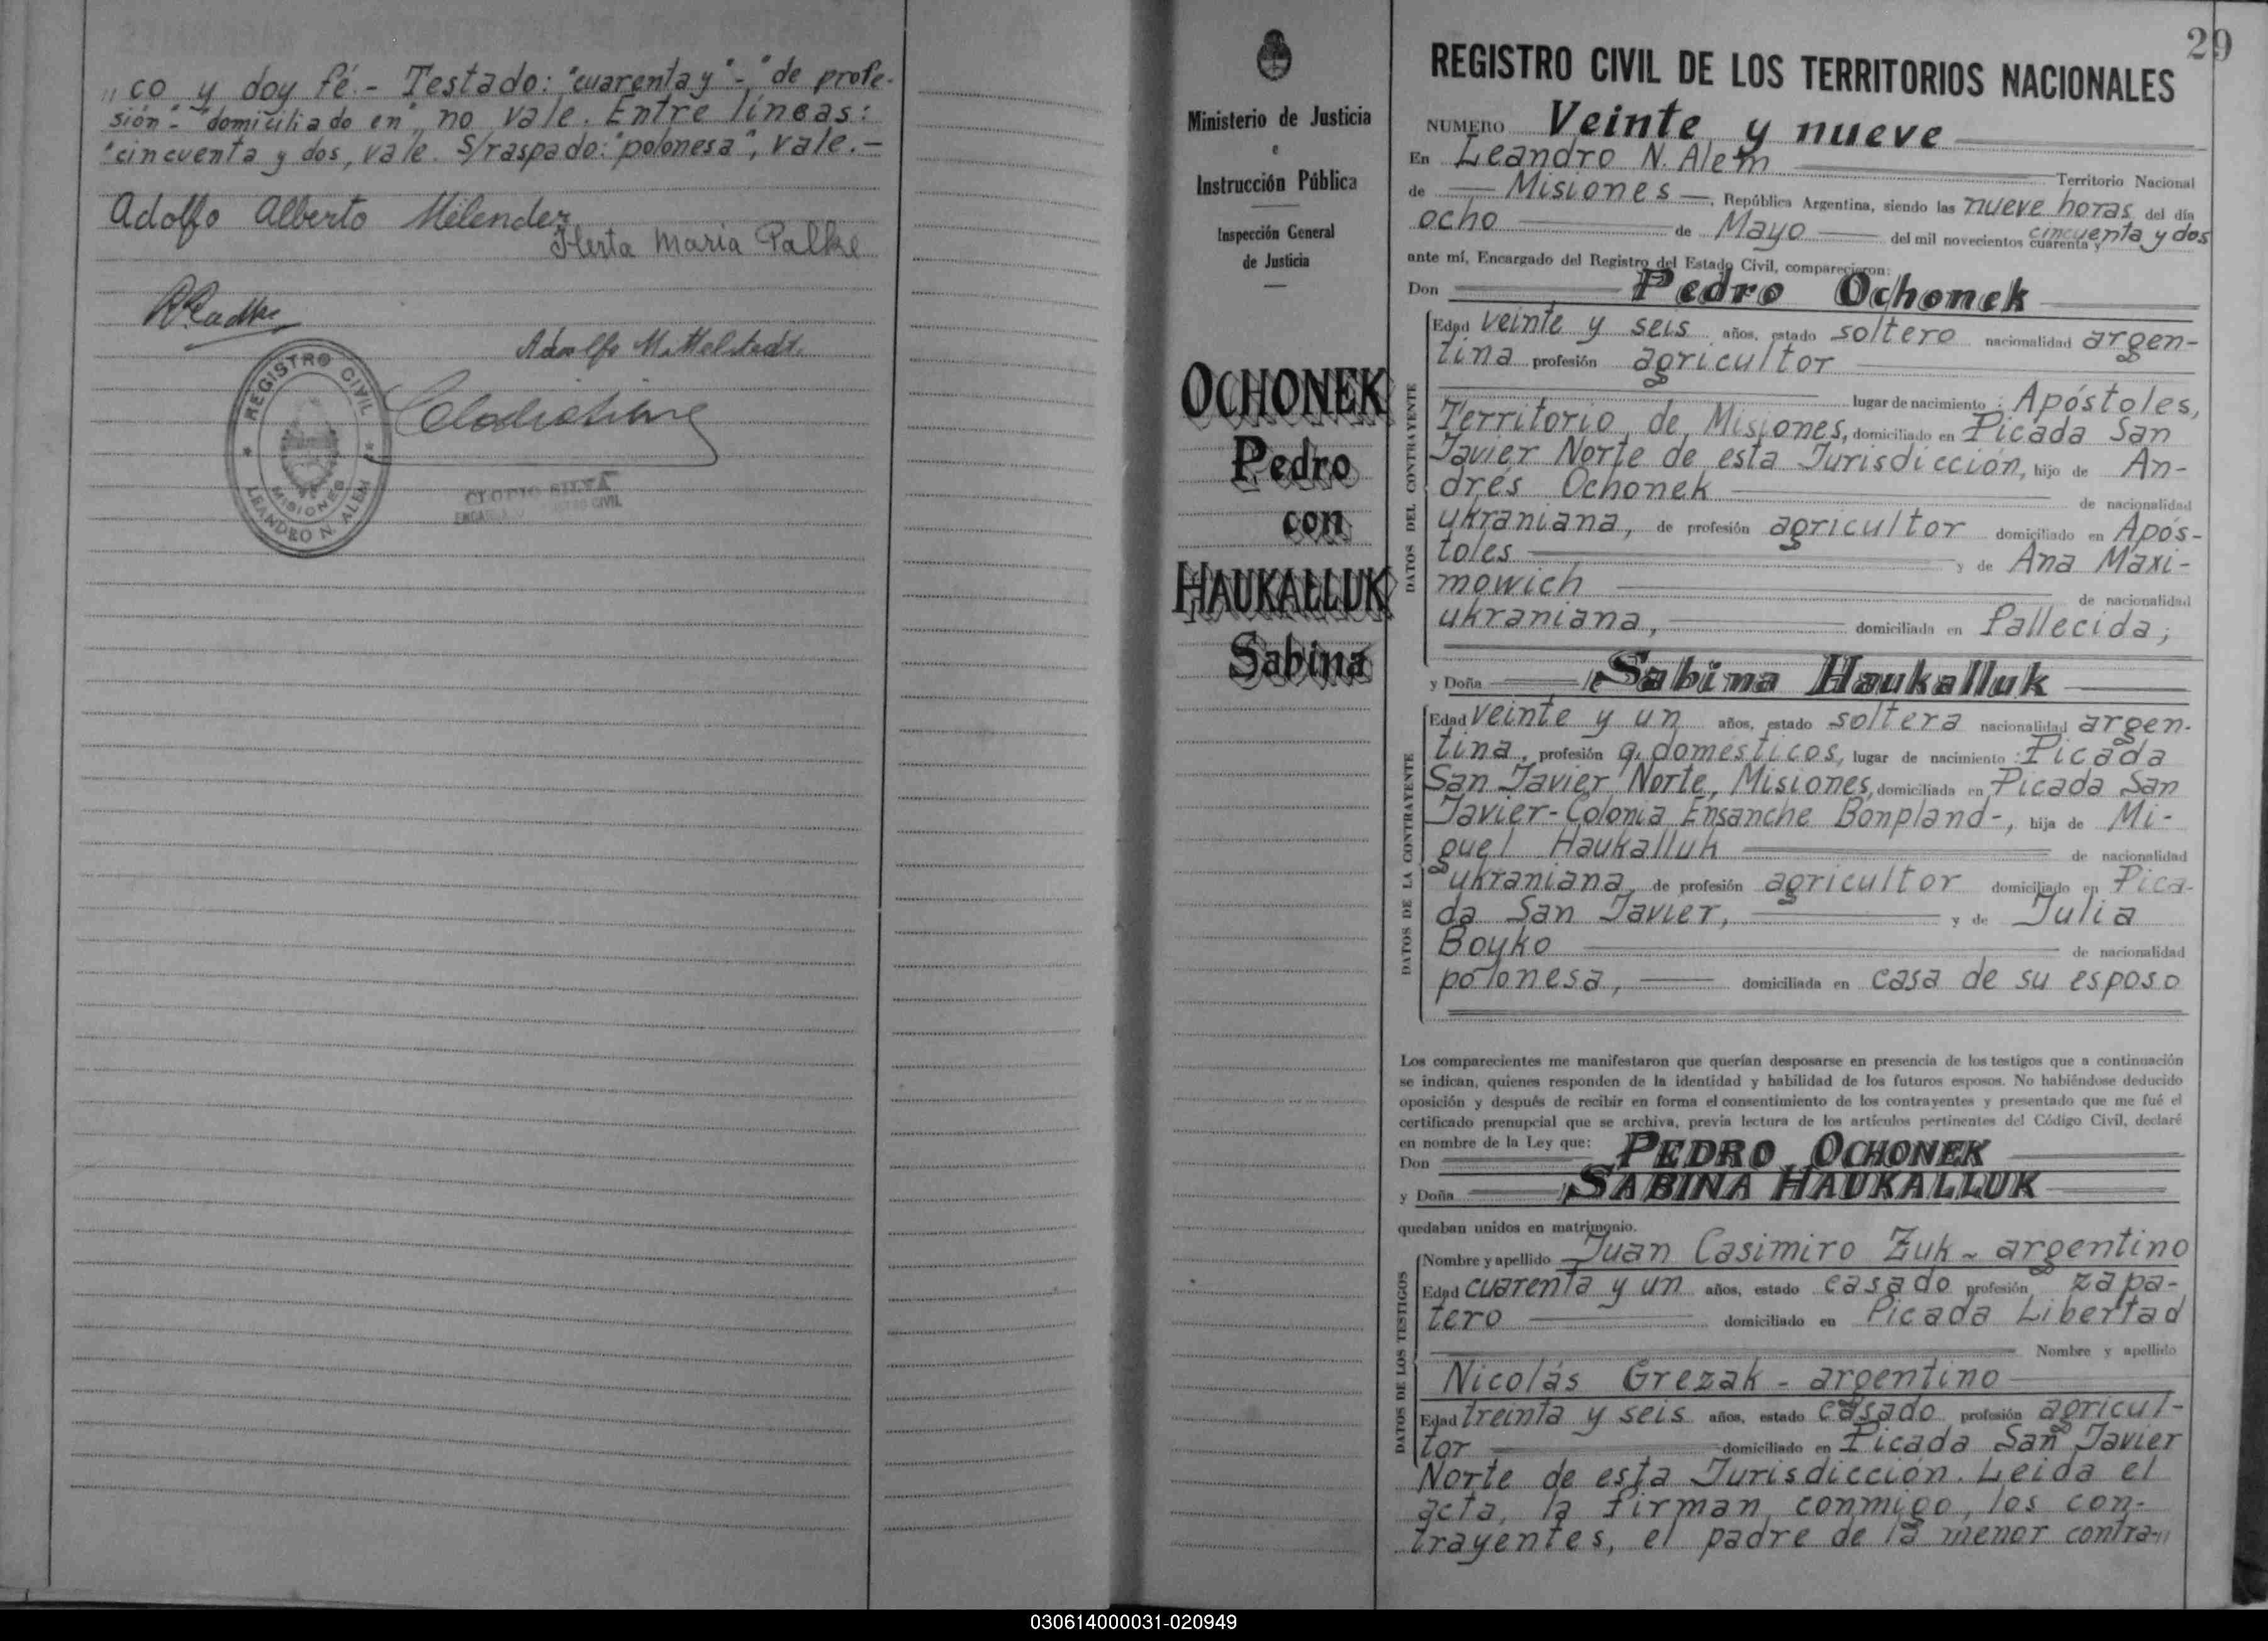 „co y doy fé.- Testado: "cuarenta y"-"de profe-
sión"-"domiciliado en", no vale. Entre líneas:
"cincuenta y dos, vale. S/raspado: "polonesa", vale.-
Adolfo Alberto Melender
Herta Maria Palke
Adolfo Mittelstedt
REGISTRO CIVIL
MISIONES
LEANDRO N. ALEM
CLODIO SILVA
Ministerio de Justicia
e
Instrucción Pública
Inspección General
de Justicia
OCHONEK
Pedro
con
HAUKALLUK
Sabina
29
REGISTRO CIVIL DE LOS TERRITORIOS NACIONALES
NUMERO Veinte y nueve
En Leandro N. Alem Territorio Nacional
de Misiones, República Argentina, siendo las nueve horas del día
ocho de Mayo del mil novecientos cuarenta y cincuenta y dos
ante mí, Encargado del Registro del Estado Civil, comparecieron:
Don Pedro Ochonek
Edad veinte y seis años, estado soltero nacionalidad argen-
tina profesión agricultor
lugar de nacimiento: Apóstoles,
Territorio de Misiones, domiciliado en Picada San
Javier Norte de esta Jurisdicción, hijo de An-
drés Ochonek de nacionalidad
ukraniana, de profesión agricultor domiciliado en Após-
toles y de Ana Maxi-
mowich de nacionalidad
ukraniana, domiciliada en Fallecida;
DATOS DEL CONTRAYENTE
y Doña Sabina Haukalluk
Edad veinte y un años, estado soltera nacionalidad argen-
tina, profesión q. domesticos, lugar de nacimiento: Picada
San Javier Norte, Misiones, domiciliada en Picada San
Javier-Colonia Ensanche Bonpland-, hija de Mi-
guel Haukalluk de nacionalidad
ukraniana, de profesión agricultor domiciliado en Pica-
da San Javier, y de Julia
Boyko de nacionalidad
polonesa, domiciliada en casa de su esposo
DATOS DE LA CONTRAYENTE
Los comparecientes me manifestaron que querían desposarse en presencia de los testigos que a continuación
se indican, quienes responden de la identidad y habilidad de los futuros esposos. No habiéndose deducido
oposición y después de recibir en forma el consentimiento de los contrayentes y presentado que me fué el
certificado prenupcial que se archiva, previa lectura de los artículos pertinentes del Código Civil, declaré
en nombre de la Ley que:
Don PEDRO OCHONEK
y Doña SABINA HAUKALLUK
quedaban unidos en matrimonio.
Nombre y apellido Juan Casimiro Zuk - argentino
Edad cuarenta y un años, estado casado profesión zapa-
tero domiciliado en Picada Libertad
Nombre y apellido
Nicolás Grezak - argentino
Edad treinta y seis años, estado casado profesión agricul-
tor domiciliado en Picada San Javier
DATOS DE LOS TESTIGOS
Norte de esta Jurisdicción. Leida el
acta, la firman conmigo, los con-
trayentes, el padre de la menor contra-„
030614000031-020949